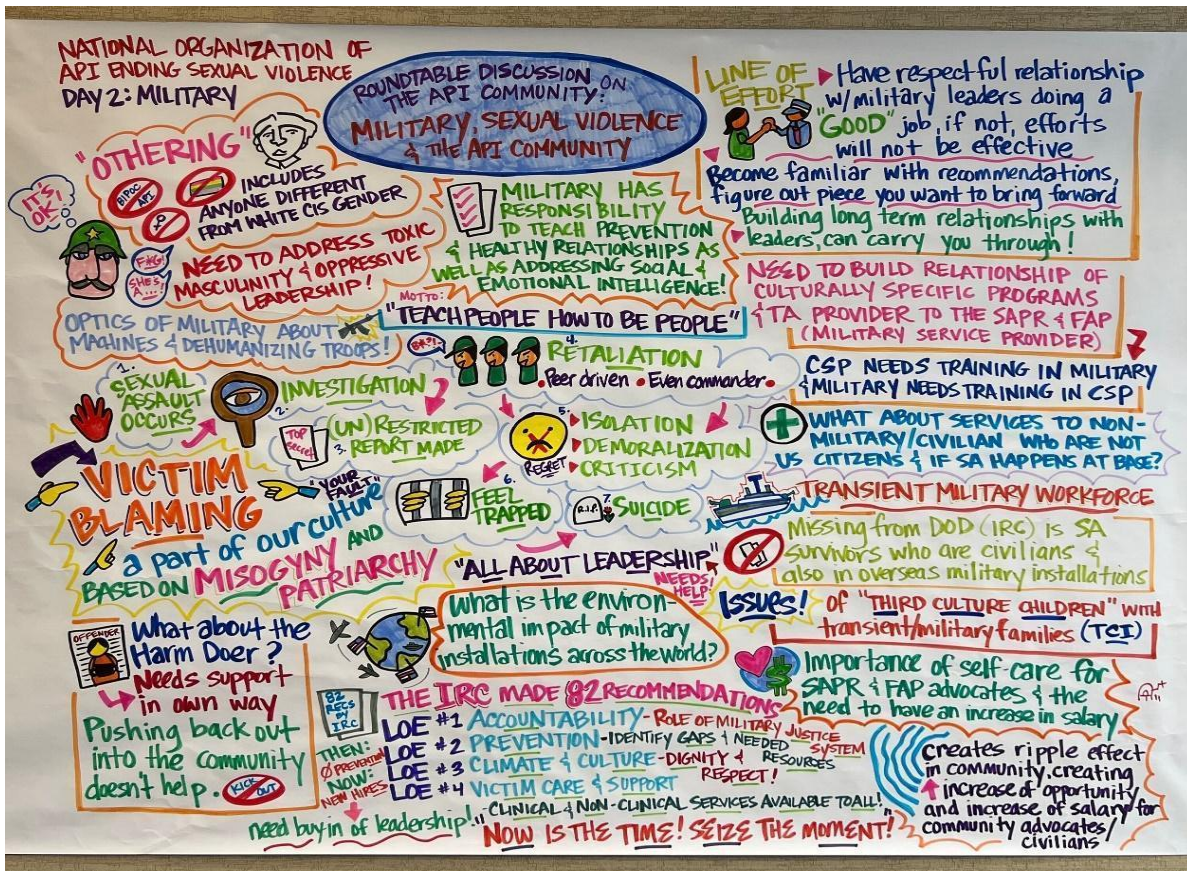 NATIONAL ORGANIZATION OF
API ENDING SEXUAL VIOLENCE
DAY 2: MILITARY
ROUNDTABLE DISCUSSION ON
THE API COMMUNITY:
MILITARY, SEXUAL VIOLENCE
& THE API COMMUNITY
"OTHERING"
BIPOC
API
INCLUDES
ANYONE DIFFERENT
FROM WHITE CIS GENDER
IT'S
OK!
F#G!
SHE'S
A...
NEED TO ADDRESS TOXIC
MASCULINITY & OPPRESSIVE
LEADERSHIP!
OPTICS OF MILITARY ABOUT
MACHINES & DEHUMANIZING TROOPS!
MILITARY HAS
RESPONSIBILITY
TO TEACH PREVENTION
& HEALTHY RELATIONSHIPS AS
WELL AS ADDRESSING SOCIAL &
EMOTIONAL INTELLIGENCE!
MOTTO:
"TEACH PEOPLE HOW TO BE PEOPLE"
LINE OF
EFFORT
Have respectful relationship
w/military leaders doing a
"GOOD" job, if not, efforts
will not be effective
Become familiar with recommendations,
figure out piece you want to bring forward
Building long term relationships with
leaders, can carry you through!
NEED TO BUILD RELATIONSHIP OF
CULTURALLY SPECIFIC PROGRAMS
& TA PROVIDER TO THE SAPR & FAP
(MILITARY SERVICE PROVIDER)
CSP NEEDS TRAINING IN MILITARY
& MILITARY NEEDS TRAINING IN CSP
WHAT ABOUT SERVICES TO NON-
MILITARY/CIVILIAN WHO ARE NOT
US CITIZENS & IF SA HAPPENS AT BASE?
TRANSIENT MILITARY WORKFORCE
Missing from DOD (IRC) is SA
survivors who are civilians &
also in overseas military installations
ISSUES! OF "THIRD CULTURE CHILDREN" WITH
transient/military families (TCI)
1.
SEXUAL
ASSAULT
OCCURS
2.
INVESTIGATION
TOP
Secret
3.
(UN)RESTRICTED
REPORT MADE
4.
RETALIATION
• Peer driven • Even commander •
5.
REGRET
ISOLATION
DEMORALIZATION
CRITICISM
6.
FEEL
TRAPPED
7.
R.I.P.
SUICIDE
VICTIM
BLAMING
"YOUR
FAULT"
a part of our culture
BASED ON MISOGYNY AND
PATRIARCHY
"ALL ABOUT LEADERSHIP"
NEEDS
HELP!
What is the environ-
mental impact of military
installations across the world?
OFFENDER
What about the
Harm Doer?
Needs support
in own way
Pushing back out
into the community
doesn't help.
KICK
OUT
82
RECS
BY
IRC
THE IRC MADE 82 RECOMMENDATIONS
LOE #1 ACCOUNTABILITY - ROLE OF MILITARY JUSTICE
SYSTEM
LOE #2 PREVENTION - IDENTIFY GAPS & NEEDED
RESOURCES
LOE #3 CLIMATE & CULTURE - DIGNITY &
RESPECT!
LOE #4 VICTIM CARE & SUPPORT
THEN:
Ø PREVENTION
NOW:
NEW HIRES
"CLINICAL & NON-CLINICAL SERVICES AVAILABLE TO ALL!"
need buy in of leadership!
"NOW IS THE TIME! SEIZE THE MOMENT!"
Importance of self-care for
SAPR & FAP advocates & the
need to have an increase in salary
creates ripple effect
in community, creating
increase of opportunity
and increase of salary for
community advocates/
civilians